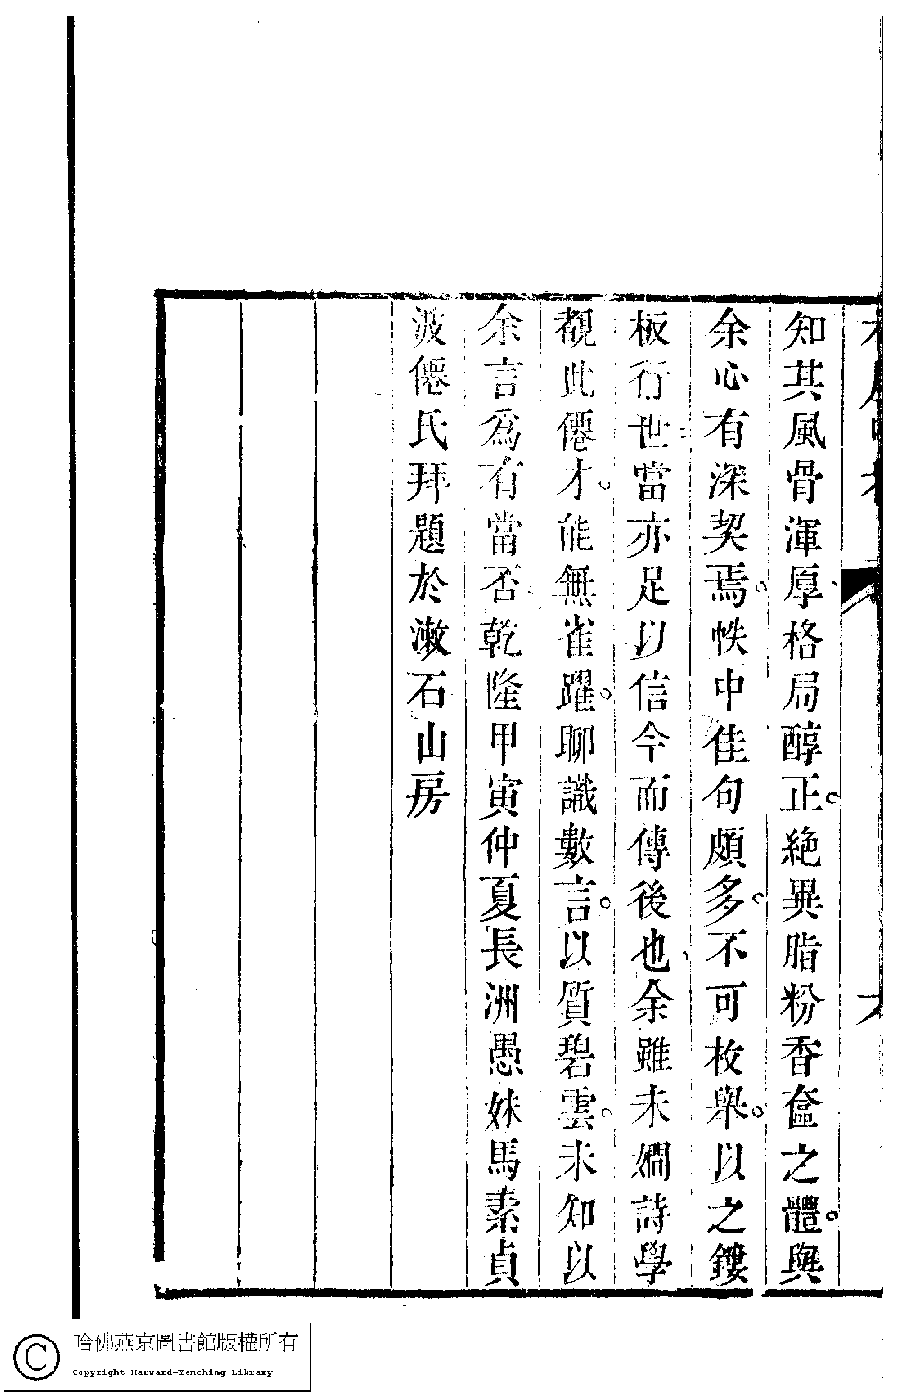 知其風骨渾厚格局醇正。絶異脂粉香奩之體。與
余心有深契焉。帙中佳句頗多。不可枚舉。以之鏤
板行世當亦足以信今而傳後也余雖未嫺詩學
覩此僊才。能無雀躍。聊識數言。以質碧雲。未知以
余言爲有當否乾隆甲寅仲夏長洲愚妹馬素貞
汲僊氏拜題於漱石山房
哈佛燕京圖書館版權所有
Copyright Harvard-Yenching Library